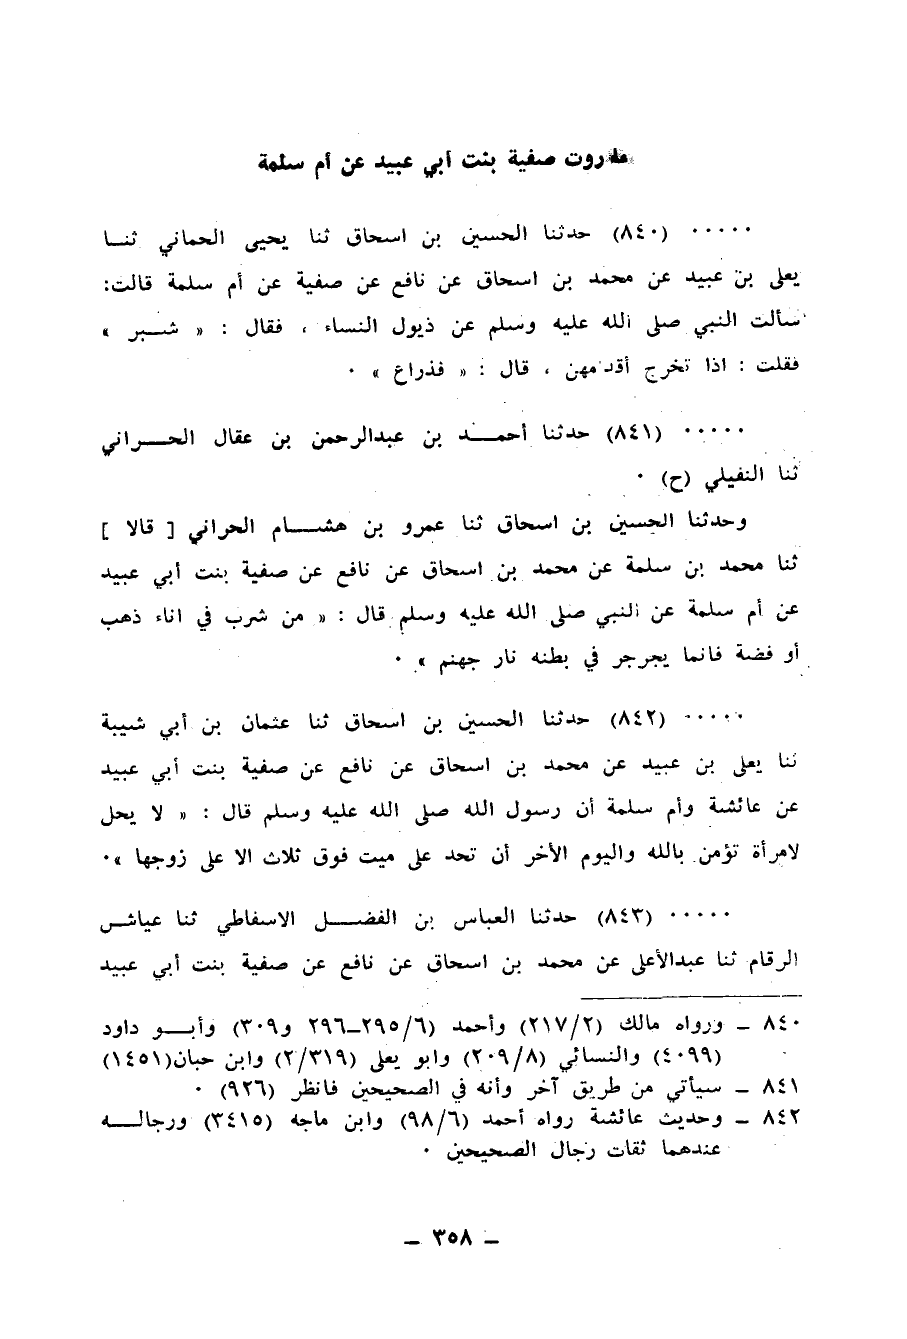 ما روت صفية بنت أبي عبيد عن أم سلمة
٠٠٠٠٠ (٨٤٠) حدثنا الحسين بن اسحاق ثنا يحيى الحماني ثنا
يعلى بن عبيد عن محمد بن اسحاق عن نافع عن صفية عن أم سلمة قالت:
سألت النبي صلى الله عليه وسلم عن ذيول النساء ، فقال : « شبر »
فقلت : اذا تخرج أقدامهن ، قال : « فذراع » ٠
٠٠٠٠٠ (٨٤١) حدثنا أحمد بن عبدالرحمن بن عقال الحراني
ثنا النفيلي (ح) ٠
وحدثنا الحسين بن اسحاق ثنا عمرو بن هشام الحراني [ قالا ]
ثنا محمد بن سلمة عن محمد بن اسحاق عن نافع عن صفية بنت أبي عبيد
عن أم سلمة عن النبي صلى الله عليه وسلم قال : « من شرب في اناء ذهب
أو فضة فانما يجرجر في بطنه نار جهنم » ٠
٠٠٠٠٠ (٨٤٢) حدثنا الحسين بن اسحاق ثنا عثمان بن أبي شيبة
ثنا يعلى بن عبيد عن محمد بن اسحاق عن نافع عن صفية بنت أبي عبيد
عن عائشة وأم سلمة أن رسول الله صلى الله عليه وسلم قال : « لا يحل
لامرأة تؤمن بالله واليوم الأخر أن تحد على ميت فوق ثلاث الا على زوجها »٠
٠٠٠٠٠ (٨٤٣) حدثنا العباس بن الفضل الاسفاطي ثنا عياش
الرقام ثنا عبدالأعلى عن محمد بن اسحاق عن نافع عن صفية بنت أبي عبيد
٨٤٠ – ورواه مالك (٢١٧/٢) وأحمد (٢٩٥/٦–٢٩٦ و٣٠٩) وأبو داود
(٤٠٩٩) والنسائي (٢٠٩/٨) وابو يعلى (٢/٣١٩) وابن حبان(١٤٥١)
٨٤١ – سيأتي من طريق آخر وأنه في الصحيحين فانظر (٩٢٦) ٠
٨٤٢ – وحديث عائشة رواه أحمد (٩٨/٦) وابن ماجه (٣٤١٥) ورجاله
عندهما ثقات رجال الصحيحين ٠
– ٣٥٨ –